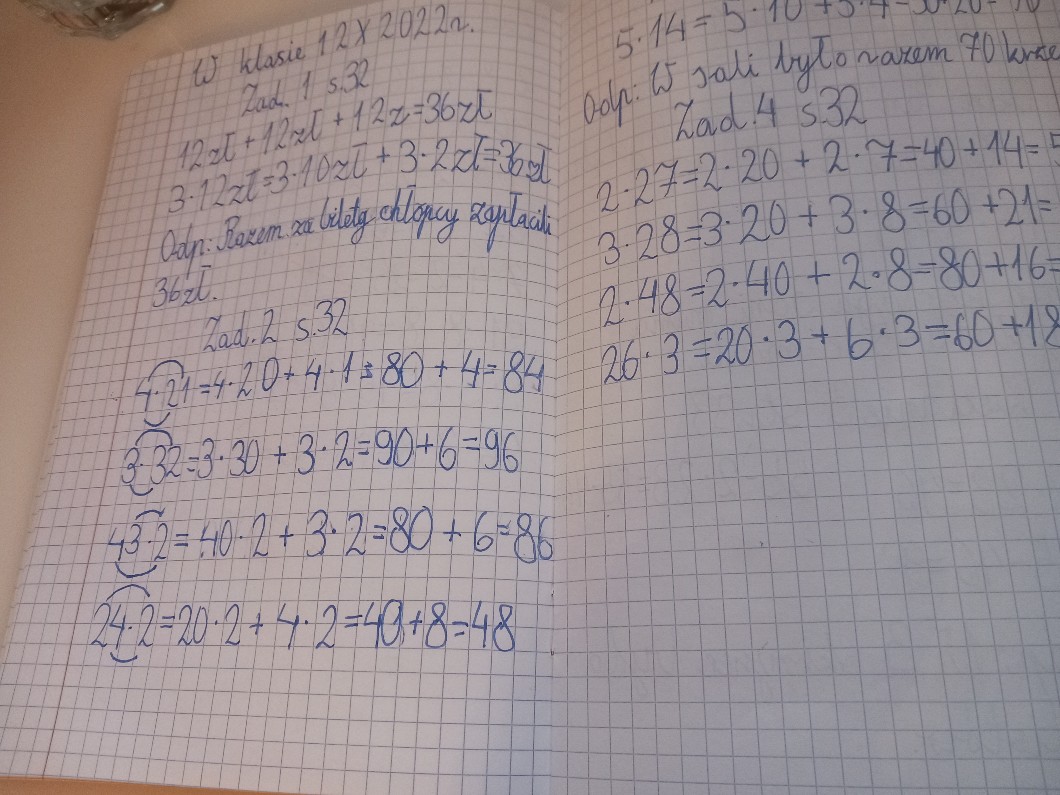 W klasie 12 X 2022r.
Zad. 1 s.32
12zł + 12zł + 12z=36zł
3·12zł=3·10zł + 3·2zł=36zł
Odp: Razem za bilety chłopcy zapłacili
36zł.
Zad.2 s.32
4·21=4·20+4·1=80+4=84
3·32=3·30+3·2=90+6=96
43·2=40·2+3·2=80+6=86
24·2=20·2+4·2=40+8=48
5·14=5·10+5·4=
Odp: W sali było razem 70
Zad.4 s.32
2·27=2·20+2·7=40+14=
3·28=3·20+3·8=60+21=
2·48=2·40+2·8=80+16=
26·3=20·3+6·3=60+18